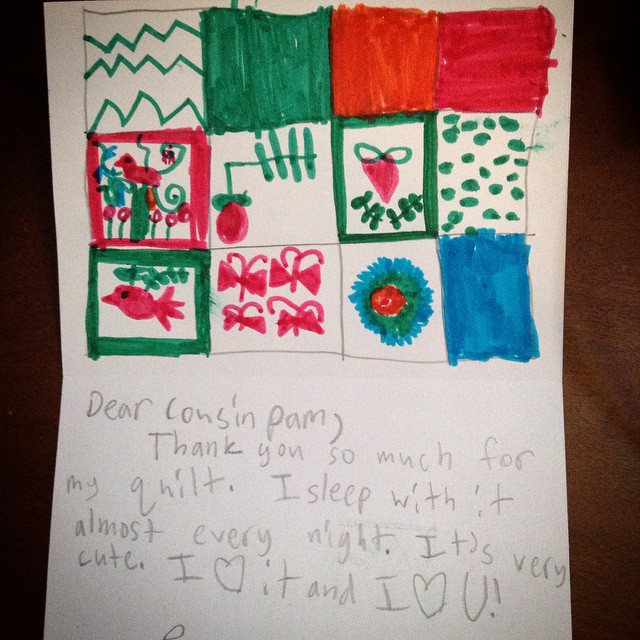 Dear Cousin Pam,
Thank you so much for
my quilt. I sleep with it
almost every night. It's very
cute. I ♡ it and I ♡ U!